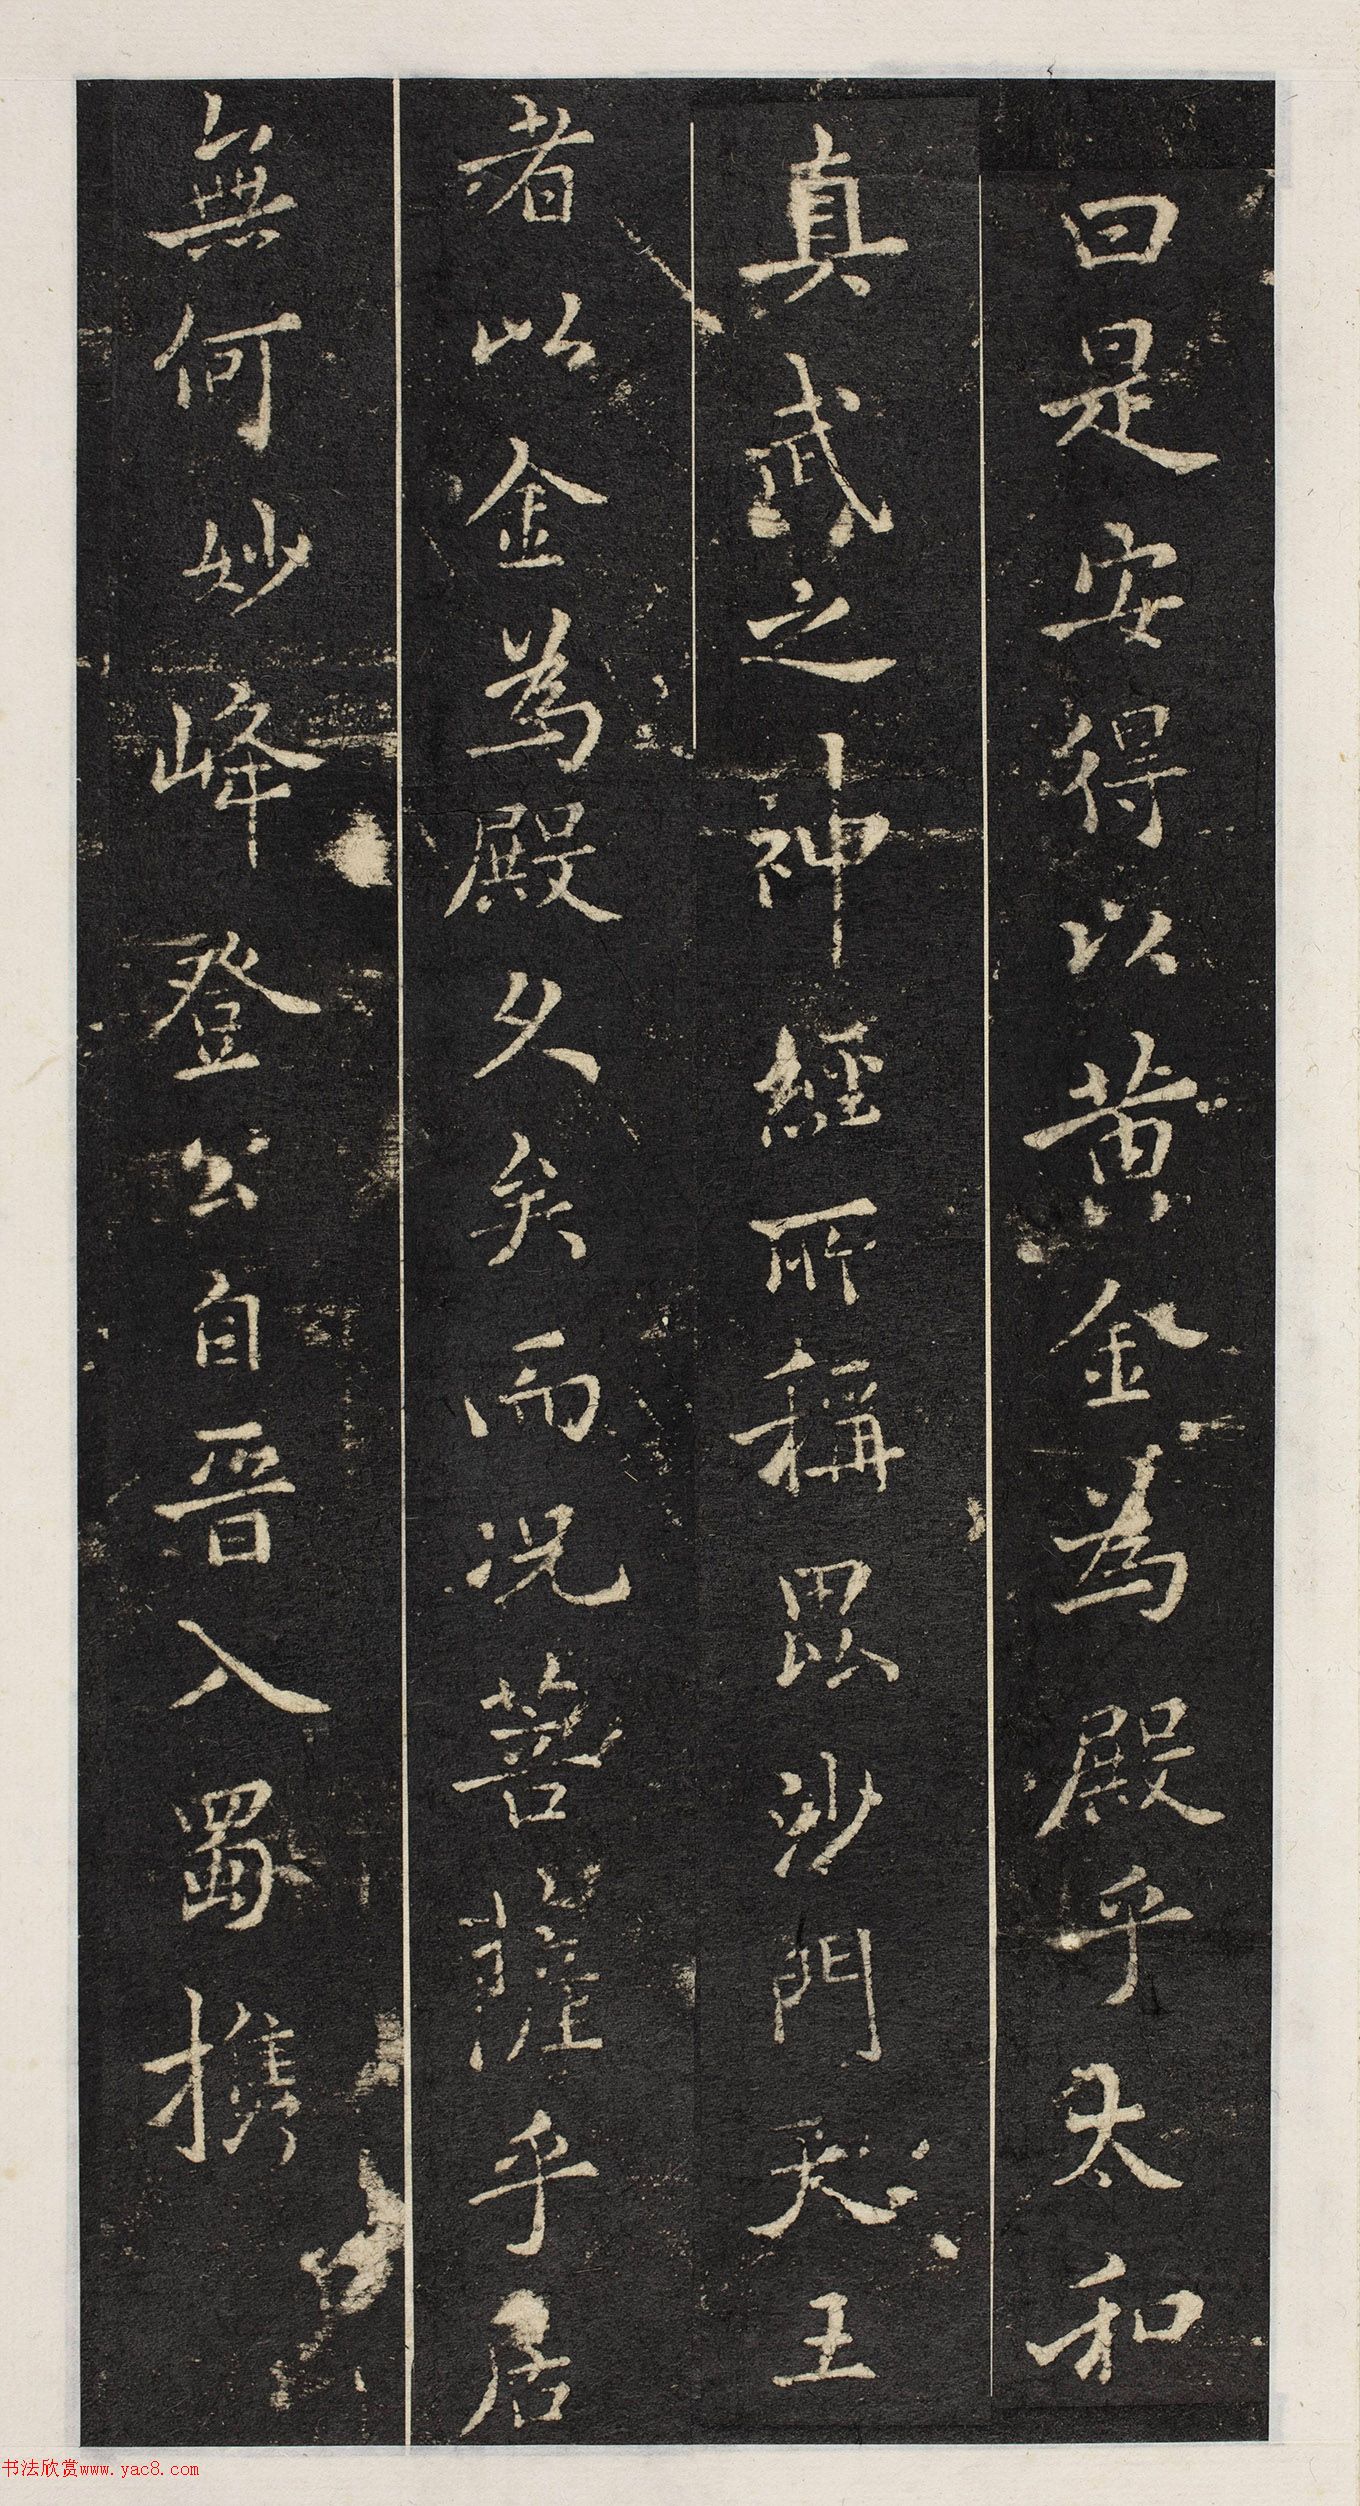 曰是安得以黄金為殿乎太和
真武之神經所稱毘沙門天王
者以金為殿久矣而况菩薩乎居
無何妙峰登公自晉入蜀携
书法欣赏www.yac8.com